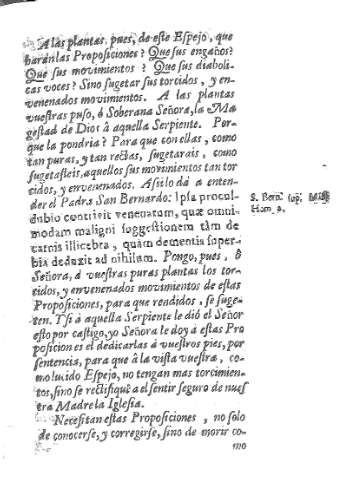 A las plantas, pues, de este Espejo, que
haràn las Proposiciones? Que sus engaños?
Que sus movimientos? Que sus diaboli-
cas voces? Sino sugetar sus torcidos, y en-
venenados movimientos. A las plantas
vuestras puso, ò Soberana Señora, la Ma-
gestad de Dios à aquella Serpiente. Por-
que la pondria? Para que con ellas, como
tan puras, y tan rectas, sugetarais, como
sugetasteis, aquellos sus movimientos tan tor
cidos, y envenenados. Asi lo dà a enten-
der el Padre San Bernardo: Ipsa procul
dubio contrivit venenatum, quæ omni-
modam maligni suggestionem tàm de
carnis illicebra, quàm dementis super-
bia deduxit ad nihilum. Pongo, pues, ò
Señora, à vuestras puras plantas los tor-
cidos, y envenenados movimientos de estas
Proposiciones, para que rendidos, se suge-
ten. Y si à aquella Serpiente le diò el Señor
esto por castigo, yo Señora le doy à estas Pro
posiciones el dedicarlas à vuestros pies, por
sentencia, para que à la vista vuestra, co-
mo luzido Espejo, no tengan mas torcimien-
tos, sino se rectifiquē a el sentir seguro de nues
tra Madre la Iglesia.
Necesitan estas Proposiciones, no solo
de conocerse, y corregirse, sino de morir co-
mo
S. Bern. sup.
Hom. 2.